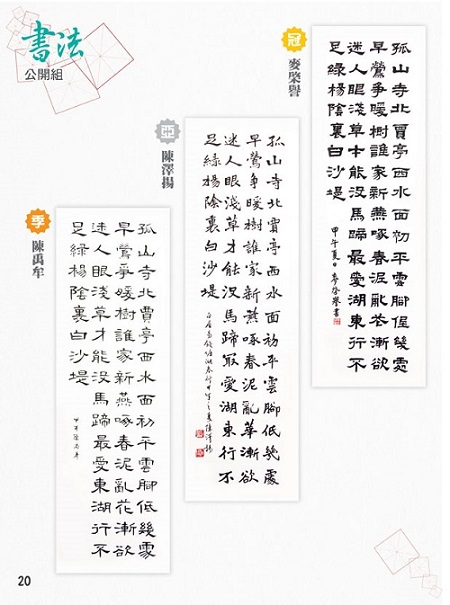 書法
公開組
冠
麥棨譽
孤山寺北賈亭西水面初平雲腳低幾處
早鶯爭暖樹誰家新燕啄春泥亂花漸欲
迷人眼淺草才能沒馬蹄最愛湖東行不
足綠楊陰裏白沙堤
甲午夏日麥棨譽書
亞
陳澤揚
孤山寺北賈亭西水面初平雲腳低幾處
早鶯爭暖樹誰家新燕啄春泥亂華漸欲
迷人眼淺草才能沒馬蹄最愛湖東行不
足綠楊陰裏白沙堤
白居易錢塘湖春行甲午之夏陳澤揚
季
陳禹牟
孤山寺北賈亭西水面初平雲腳低幾處
早鶯爭暖樹誰家新燕啄春泥亂花漸欲
迷人眼淺草才能沒馬蹄最愛東湖行不
足綠楊陰裏白沙堤
甲午陳禹牟
20